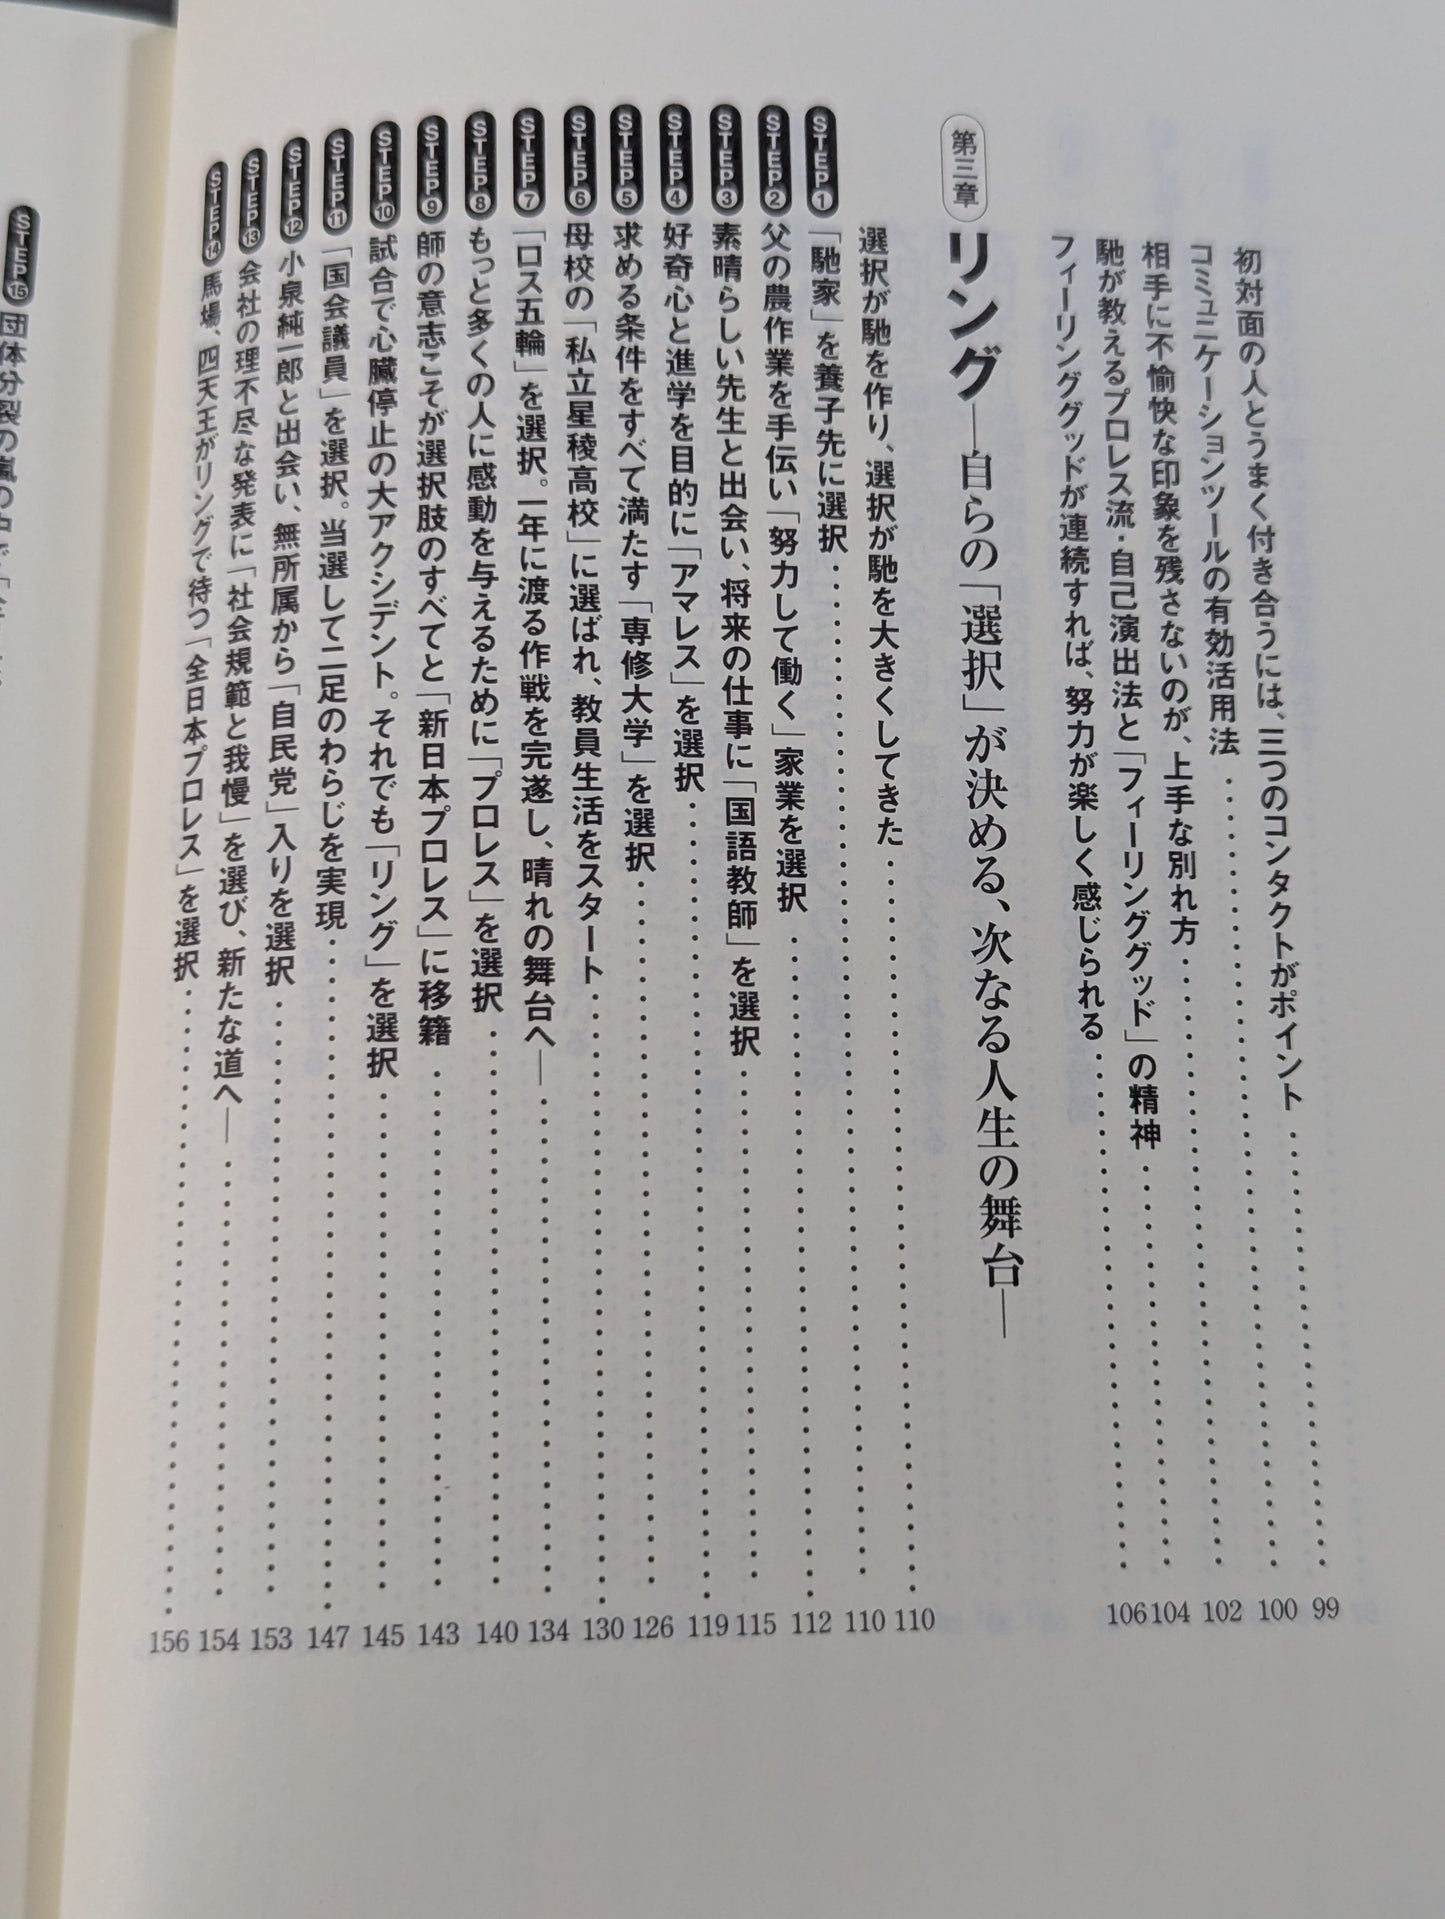 初対面の人とうまく付き合うには、三つのコンタクトがポイント 99
コミュニケーションツールの有効活用法 100
相手に不愉快な印象を残さないのが、上手な別れ方 102
馳が教えるプロレス流・自己演出法と「フィーリンググッド」の精神 104
フィーリンググッドが連続すれば、努力が楽しく感じられる 106
第三章 リング―自らの「選択」が決める、次なる人生の舞台―
選択が馳を作り、選択が馳を大きくしてきた 110
STEP1 「馳家」を養子先に選択 110
STEP2 父の農作業を手伝い「努力して働く」家業を選択 112
STEP3 素晴らしい先生と出会い、将来の仕事に「国語教師」を選択 115
STEP4 好奇心と進学を目的に「アマレス」を選択 119
STEP5 求める条件をすべて満たす「専修大学」を選択 126
STEP6 母校の「私立星稜高校」に選ばれ、教員生活をスタート 130
STEP7 「ロス五輪」を選択。一年に渡る作戦を完遂し、晴れの舞台へ― 134
STEP8 もっと多くの人に感動を与えるために「プロレス」を選択 140
STEP9 師の意志こそが選択肢のすべてと「新日本プロレス」に移籍 143
STEP10 試合で心臓停止の大アクシデント。それでも「リング」を選択 145
STEP11 「国会議員」を選択。当選して二足のわらじを実現 147
STEP12 小泉純一郎と出会い、無所属から「自民党」入りを選択 153
STEP13 会社の理不尽な発表に「社会規範と我慢」を選び、新たな道へ― 154
STEP14 馬場、四天王がリングで待つ「全日本プロレス」を選択 156
STEP15 団体分裂の嵐の中で、「